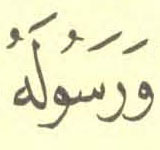 وَرَسُولَهُ